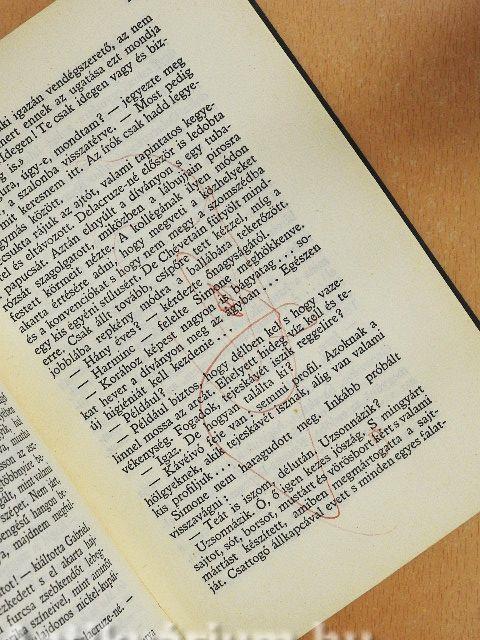 ki igazán vendégszerető, az nem
mert ennek az ugatása ezt mondja
Idegen! Te csak idegen vagy és biz-
is.»
úgy-e, mondtam? — jegyezte meg
szalonba visszatérve. — Most pedig
mit keresnem itt. Az írók csak hadd legye-
gymás között.
csukta rájuk az ajtót, valami tapintatos kegye-
el és eltávozott. Delacruze-né először is ledobta
papucsát. Aztán elnyúlt a díványon s egy tuba-
rózsát szagolgatott, miközben a lábujjain pirosra
festett körmeit nézte. A kollégának ilyen módon
akarta értésére adni, hogy megveti a közhelyeket
és a konvenciókat s hogy nem megy a szomszédba
egy kis egyéni stílusért. De Chevetain fütyölt mind-
erre. Csak állt tovább, csípőre tett kézzel, míg a
jobblába repkény módra a ballábára tekerőzött.
— Hány éves? — kérdezte őnagyságától.
— Harminc — felelte Simone meghökkenve.
— Korához képest nagyon bágyatag... so-
kat hever a díványon meg az ágyban... Egészen
új higiéniát kell kezdenie...
— Például?
— Például biztos, hogy délben kel s hogy vaze-
linnel mossa az arcát. Ehelyett hideg víz kell és te-
vékenység. Fogadok, tejeskávét iszik reggelire?
— Igaz. De hogyan találta ki?
— Kávéivó feje van s annivó profil. Azoknak a
hölgyeknek, akik tejeskávét isznak, alig van valami
kis profiljuk...
Simone nem haragudott meg. Inkább próbált
visszavágni:
— Teát is iszom, délután. Uzsonnázik?
Uzsonnázik. Ó, ő igen kezes jószág. S mingyárt
sajtot, sót, borsot, mustárt és vörösbort kért s valami
mártást készített, amiben megmártogatta a sajt-
ját. Csattogó állkapcával evett s minden egyes falat-
szépet. Nem járt
majdnem
— kiáltotta Gabriel,
furcsa zsebkendőt
színeivel, mint amitől